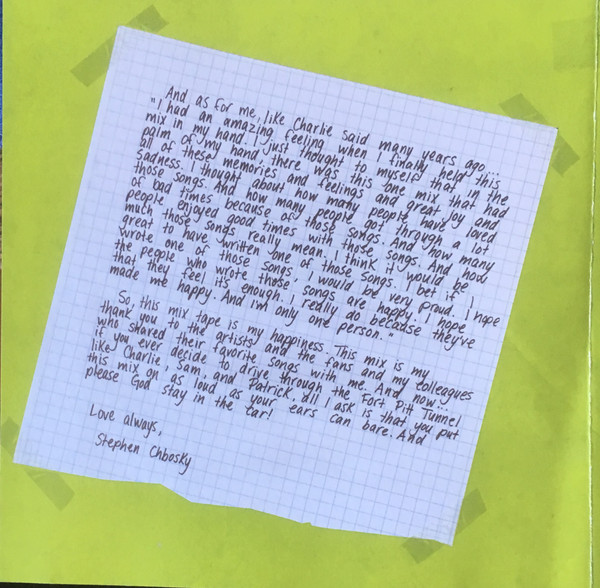 And as for me, like Charlie said many years ago...
"I had an amazing feeling when I finally held this
mix in my hand. I just thought to myself that in the
palm of my hand, there was this one mix that had
all of these memories and feelings and great joy and
sadness. I thought about how many people have loved
those songs. And how many people got through a lot
of bad times because of those songs. And how many
people enjoyed good times with those songs. And how
much those songs really mean. I think it would be
great to have written one of those songs. I bet if I
wrote one of those songs, I would be very proud. I hope
the people who wrote those songs are happy. I hope
that they feel it's enough. I really do because they've
made me happy. And I'm only one person."
So, this mix tape is my happiness. This mix is my
thank you to the artists and the fans and my colleagues
who shared their favorite songs with me. And now...
if you ever decide to drive through the Fort Pitt Tunnel
like Charlie, Sam, and Patrick, all I ask is that you put
this mix on as loud as your ears can bare. And
please God stay in the car!
Love always,
Stephen Chbosky